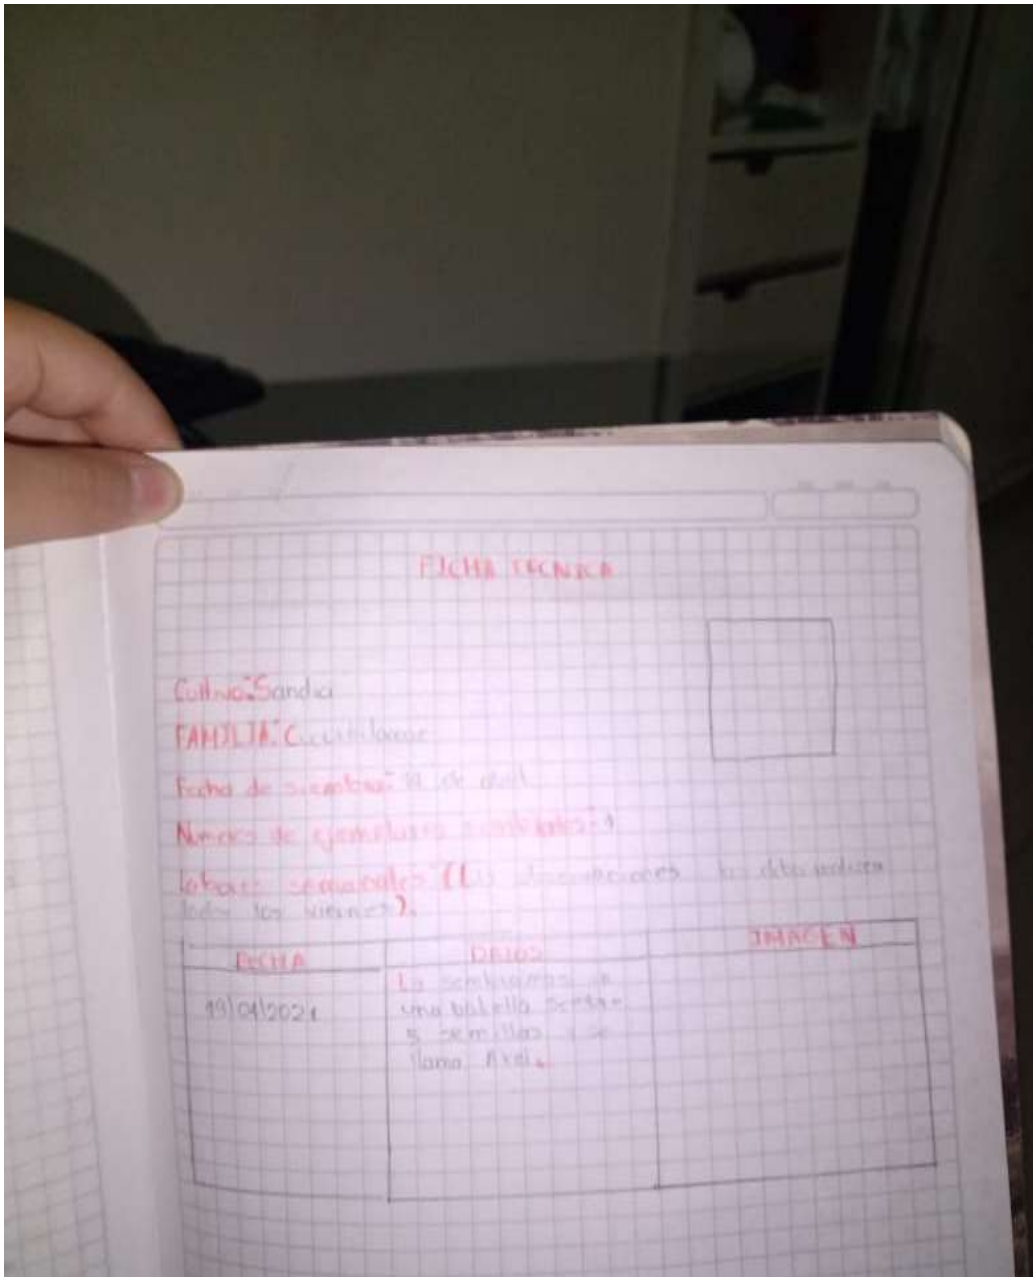 FICHA TECNICA
Cultivo: Sandia
FAMILIA: Cucurbitaceae
Fecha de siembra: de abril
Numero de ejemplares
labores semanales (Las observaciones las debo realizar
todos los viernes).
FECHA DATOS IMAGEN
19/04/2021
La sembramos en
una botella
5 semillas y se
llama Axel.